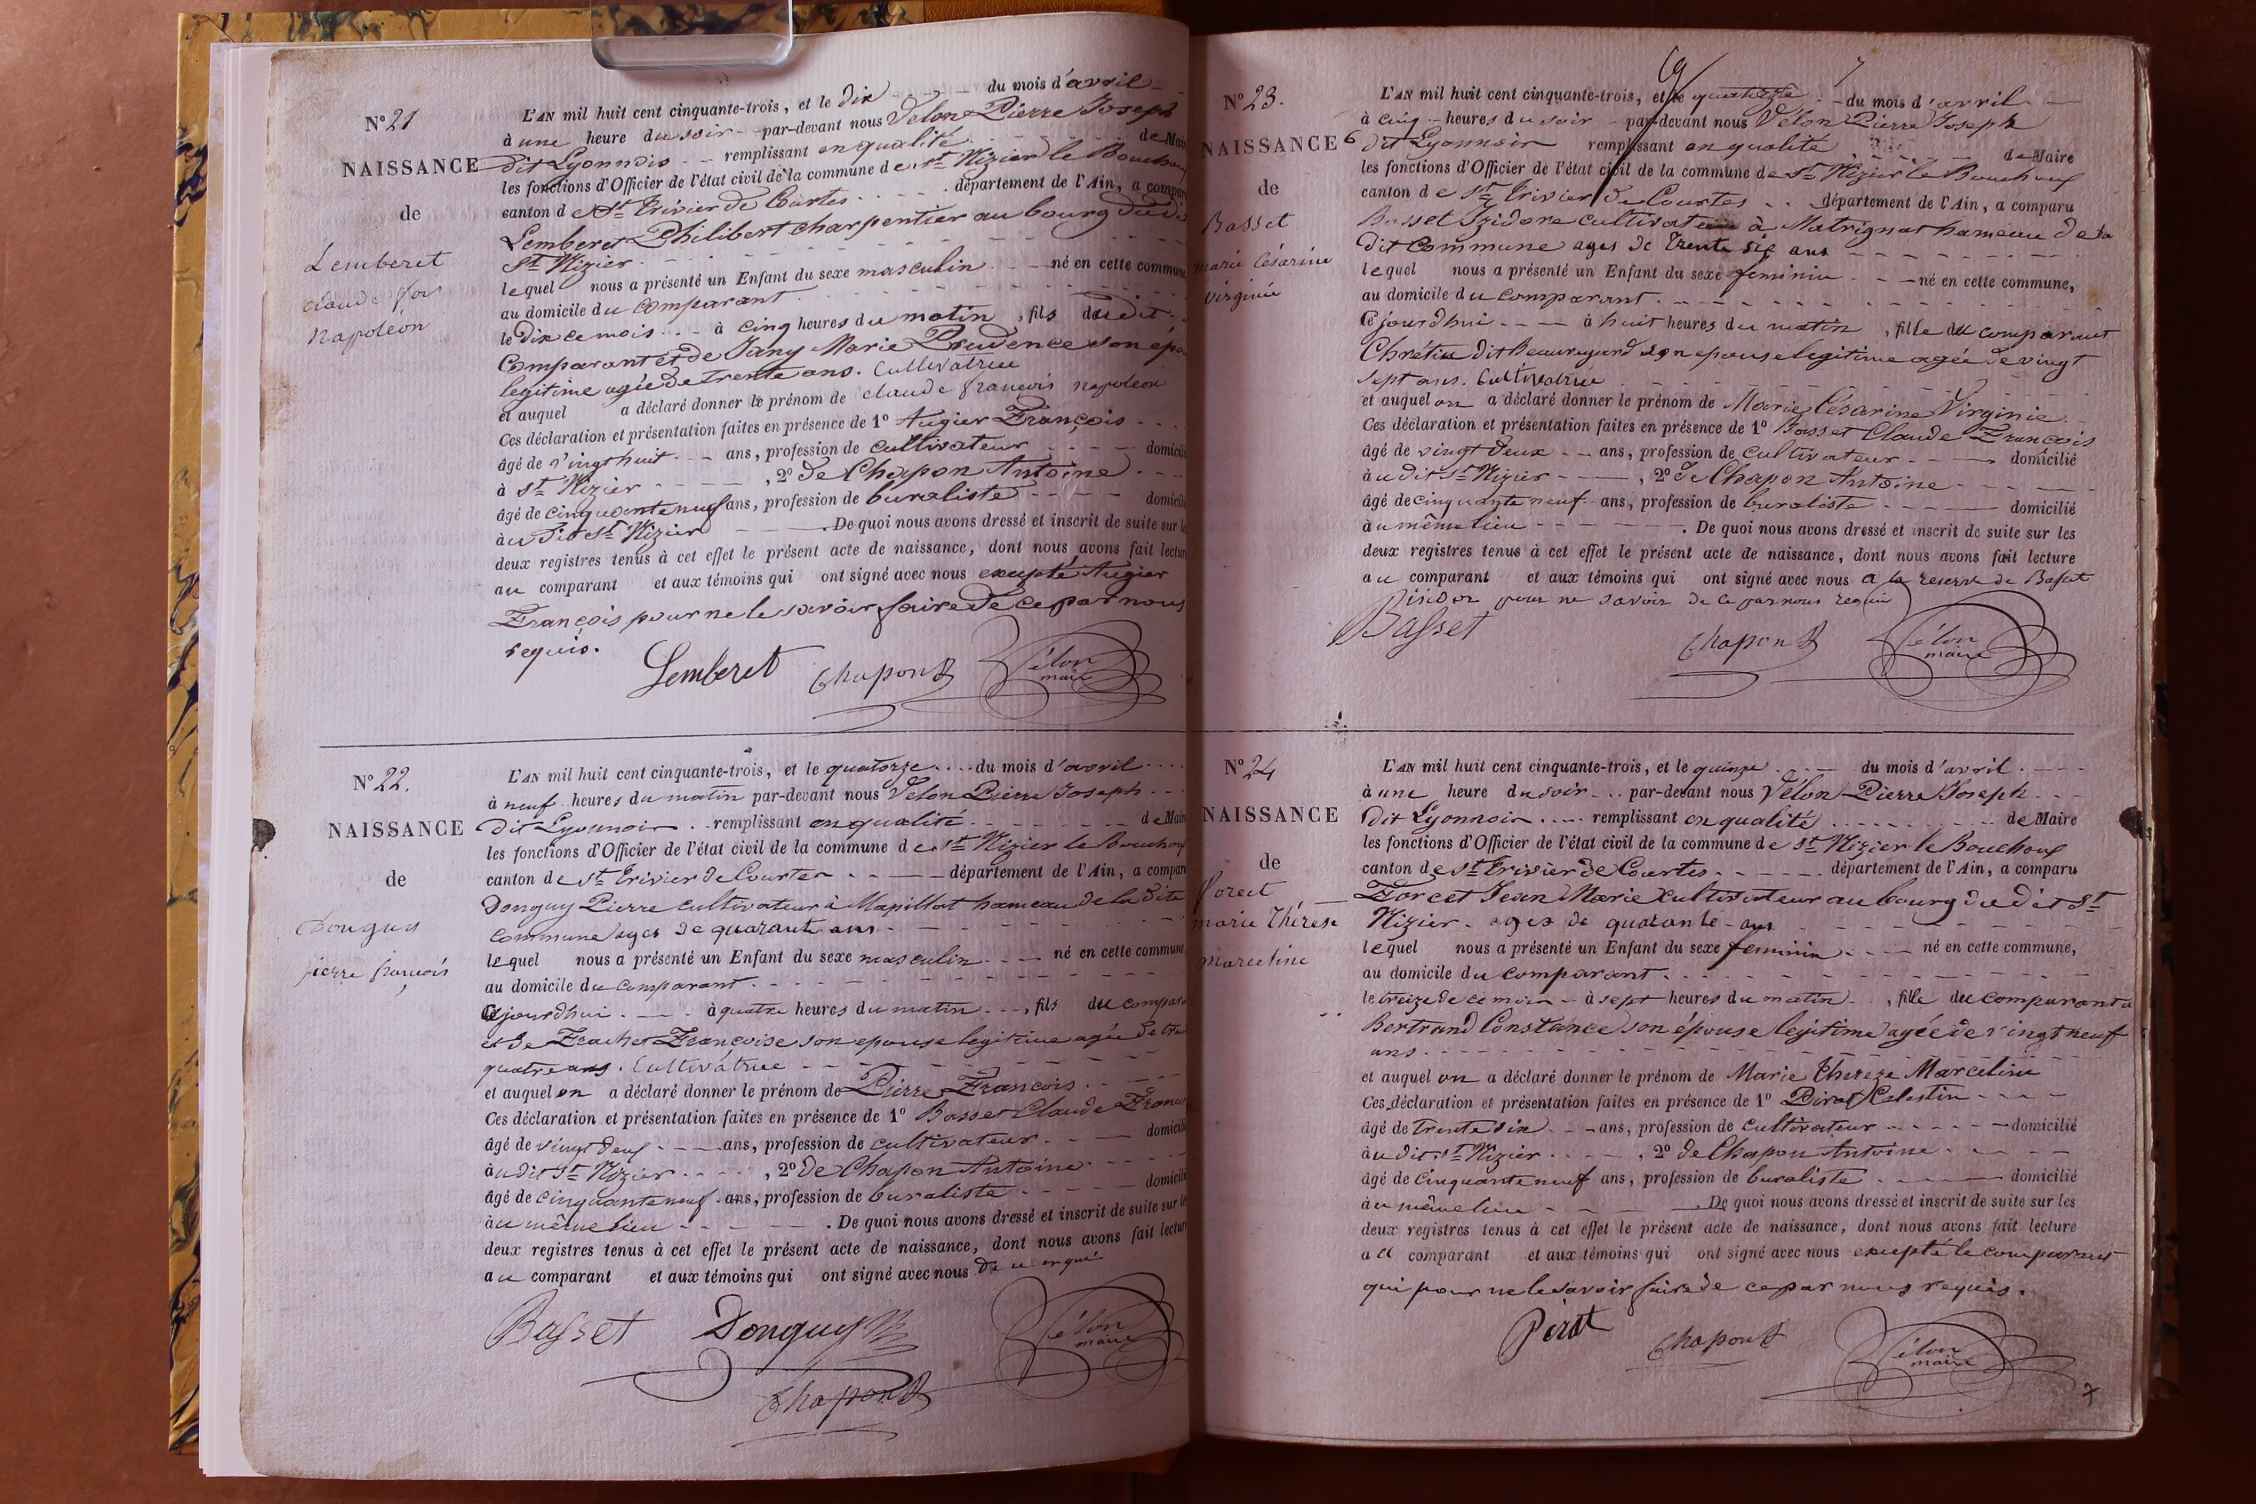 N° 21
NAISSANCE
de
Lemberet
claude fois
Napoléon
L'AN mil huit cent cinquante-trois, et le dix du mois d'avril
à une heure du soir par-devant nous Velon Pierre Joseph
dit Lyonnois remplissant en qualité de Mair
les fonctions d'Officier de l'état civil de la commune de St Nizier le Bouchoux
canton de St Trivier de Courtes département de l'Ain, a compar
Lemberet Philibert charpentier au bourg dudit
St Nizier
lequel nous a présenté un Enfant du sexe masculin né en cette commune
au domicile du comparant
le dix ce mois à cinq heures du matin, fils du dit
Comparant et de Jany Marie Prudence son épo
legitime agée de trente ans. Cultivatrice
et auquel a déclaré donner le prénom de claude francois napoléon
Ces déclaration et présentation faites en présence de 1° Augier François
âgé de vingt huit ans, profession de cultivateur domicilié
à St Nizier, 2° de Chapon Antoine
âgé de cinquante neuf ans, profession de buraliste domicilié
à u dit St Nizier. De quoi nous avons dressé et inscrit de suite sur le
deux registres tenus à cet effet le présent acte de naissance, dont nous avons fait lectur
au comparant et aux témoins qui ont signé avec nous excepté Augier
François pour ne le savoir faire de ce par nous
requis.
Lemberet Chapon Vélon
maire
N° 22.
NAISSANCE
de
Donguy
pierre françois
L'AN mil huit cent cinquante-trois, et le quatorze du mois d'avril
à neuf heures du matin par-devant nous Velon Pierre Joseph
dit Lyonnois remplissant en qualité de Mair
les fonctions d'Officier de l'état civil de la commune de St Nizier le Bouchoux
canton de St Trivier de Courtes département de l'Ain, a compar
Donguy Pierre cultivateur à Mapillat hameau de la dite
commune ages de quarante ans
lequel nous a présenté un Enfant du sexe masculin né en cette commune
au domicile du comparant
Cejourdhui à quatre heures du matin, fils du compara
et de Françoise son epouse legitime agée de tre
quatre ans. Cultivatrice
et auquel on a déclaré donner le prénom de Pierre François
Ces déclaration et présentation faites en présence de 1° Basset Claude Francoi
âgé de vingt deux ans, profession de cultivateur domicilié
à u dit St Nizier, 2° de Chapon Antoine
âgé de cinquante neuf ans, profession de buraliste domicilié
à u même lieu. De quoi nous avons dressé et inscrit de suite sur le
deux registres tenus à cet effet le présent acte de naissance, dont nous avons fait lectur
au comparant et aux témoins qui ont signé avec nous de ce
Basset Donguy Vélon
maire
Chapon
7
N° 23.
NAISSANCE 6
de
Basset
marie Césarine
virginie
L'AN mil huit cent cinquante-trois, et le quatorze du mois d'avril
à cinq heures du soir par-devant nous Vélon Pierre Joseph
dit Lyonnois remplissant en qualité de Maire
les fonctions d'Officier de l'état civil de la commune de St Nizier le Bouchoux
canton de St Trivier de Courtes département de l'Ain, a comparu
Basset Izidore cultivateur à Matrignat hameau de la
dit commune ages de trente six ans
lequel nous a présenté un Enfant du sexe feminin né en cette commune,
au domicile du comparant
Cejourdhui à huit heures du matin, fille du comparant
Chrétin dit Beauregard son epouse legitime agée de vingt
sept ans. Cultivatrice
et auquel on a déclaré donner le prénom de Marie Césarine Virginie
Ces déclaration et présentation faites en présence de 1° Basset Claude Francois
âgé de vingt deux ans, profession de cultivateur domicilié
à u dit St Nizier, 2° de Chapon Antoine
âgé de cinquante neuf ans, profession de buraliste domicilié
à u même lieu. De quoi nous avons dressé et inscrit de suite sur les
deux registres tenus à cet effet le présent acte de naissance, dont nous avons fait lecture
au comparant et aux témoins qui ont signé avec nous a la reserve de Basset
Isidor pour ne savoir de ce par nous requis
Basset Chapon Vélon
maire
N° 24
NAISSANCE
de
Forest
marie Thérèse
marceline
L'AN mil huit cent cinquante-trois, et le quinze du mois d'avril
à une heure du soir par-devant nous Vélon Pierre Joseph
dit Lyonnois remplissant en qualité de Maire
les fonctions d'Officier de l'état civil de la commune de St Nizier le Bouchoux
canton de St Trivier de Courtes département de l'Ain, a comparu
Forest Jean Marie Cultivateur au bourg du dit St
Nizier ages de quarante ans
lequel nous a présenté un Enfant du sexe feminin né en cette commune,
au domicile du comparant
le treize de ce mois à sept heures du matin, fille du comparant
Bertrand Constance son épouse legitime agée de vingt neuf
ans
et auquel on a déclaré donner le prénom de Marie Thereze Marceline
Ces déclaration et présentation faites en présence de 1° Pirat Celestin
âgé de trente six ans, profession de Cultivateur domicilié
à u dit St Nizier, 2° de Chapon Antoine
âgé de cinquante neuf ans, profession de buraliste domicilié
à u même lieu. De quoi nous avons dressé et inscrit de suite sur les
deux registres tenus à cet effet le présent acte de naissance, dont nous avons fait lecture
au comparant et aux témoins qui ont signé avec nous excepté le comparant
qui pour ne le savoir faire de ce par nous requis.
Pirat Chapon Vélon
maire
7